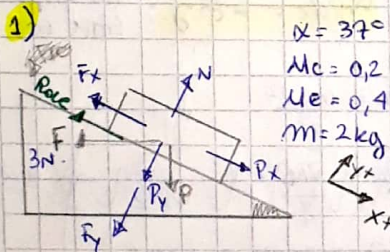 1)
α = 37°
Mc = 0,2
Me = 0,4
m = 2kg
Fx
N
Roce
F
3N.
Px
Py
P
Fy
Y+
X+